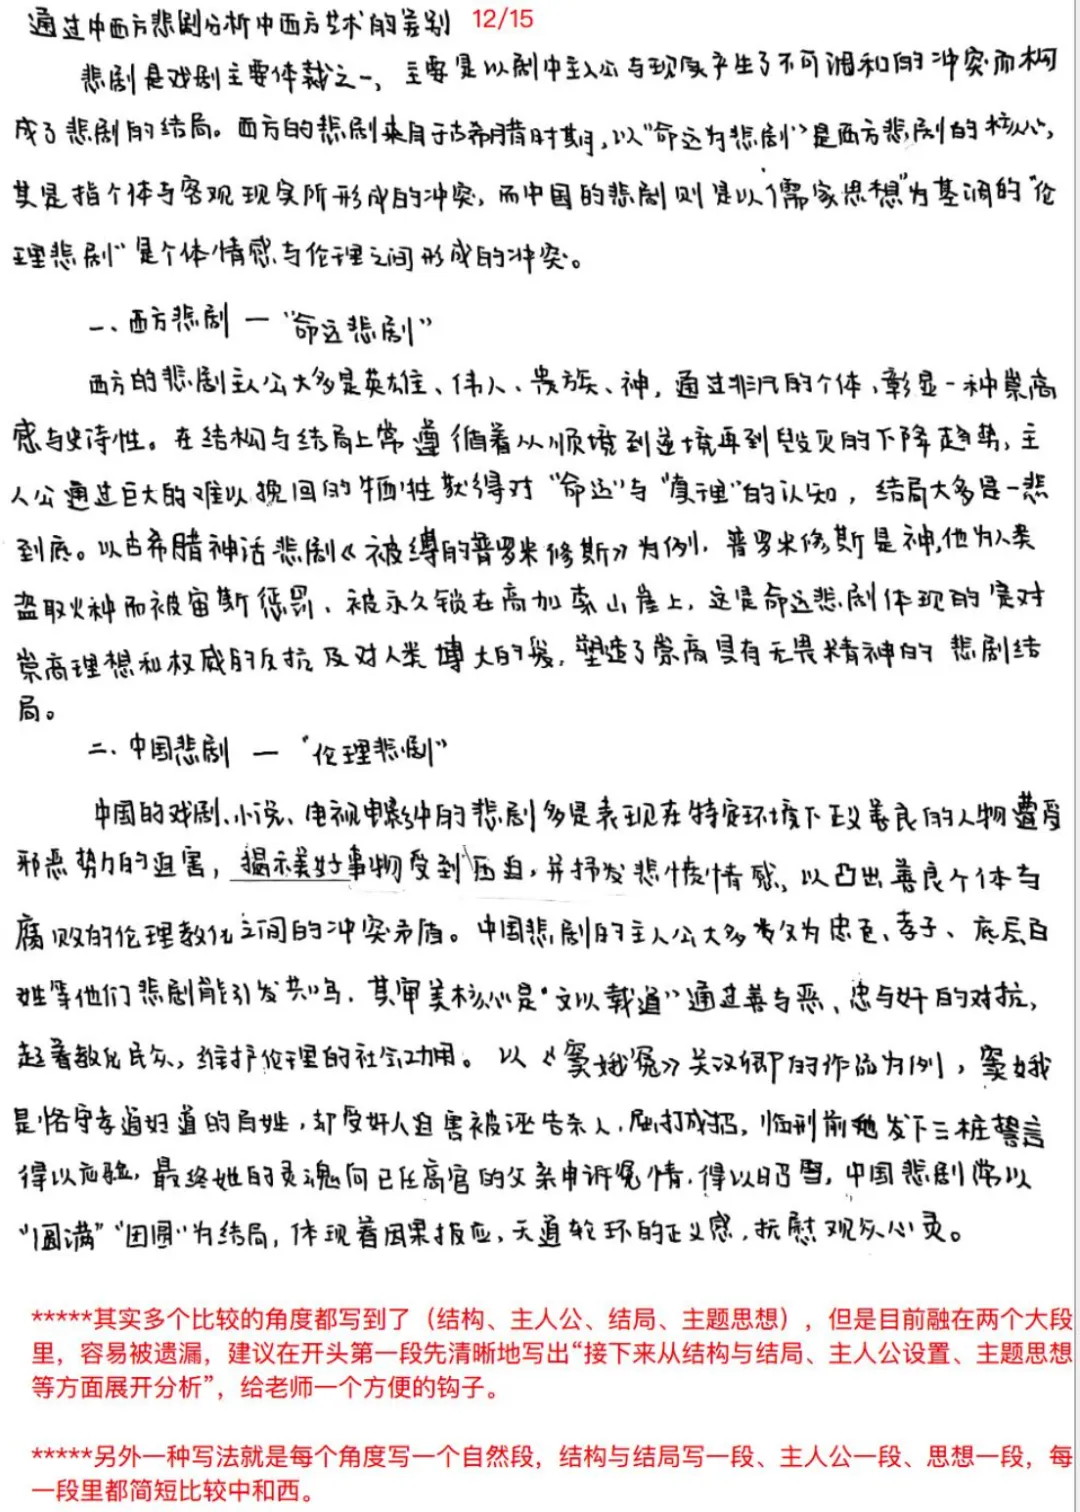 通过中西方悲剧分析中西方艺术的差别 12/15
悲剧是戏剧主要体裁之一，主要是以剧中主人公与现实产生了不可调和的冲突而构
成了悲剧的结局。西方的悲剧来自于古希腊时期，以“命运为悲剧”是西方悲剧的核心，
其是指个体与客观现实所形成的冲突，而中国的悲剧则是以“儒家思想”为基调的“伦
理悲剧”是个体情感与伦理之间形成的冲突。
一、西方悲剧 — “命运悲剧”
西方的悲剧主人公大多是英雄、伟人、贵族、神，通过非凡的个体，彰显一种崇高
感与史诗性。在结构与结局上常遵循着从顺境到逆境再到毁灭的下降趋势，主
人公通过巨大的难以挽回的牺牲获得对“命运”与“真理”的认知，结局大多是一悲
到底。以古希腊神话悲剧《被缚的普罗米修斯》为例，普罗米修斯是神，他为人类
盗取火种而被宙斯惩罚，被永久锁在高加索山崖上，这是命运悲剧体现的是对
崇高理想和权威的反抗及对人类博大的爱，塑造了崇高具有无畏精神的悲剧结
局。
二、中国悲剧 — “伦理悲剧”
中国的戏剧、小说、电视电影中的悲剧多是表现在特定环境下正义善良的人物遭受
邪恶势力的迫害，揭示美好事物受到压迫，并抒发悲愤情感，以凸出善良个体与
腐败的伦理教化之间的冲突矛盾。中国悲剧的主人公大多为忠臣、孝子、底层百
姓等他们悲剧能引发共鸣，其审美核心是“文以载道”通过善与恶、忠与奸的对抗，
起着教化民众，维护伦理的社会功用。以《窦娥冤》关汉卿的作品为例，窦娥
是恪守孝道妇道的百姓，却受奸人迫害被诬告杀人，屈打成招，临刑前她发下三桩誓言
得以应验，最终她的灵魂向已任高官的父亲申诉冤情，得以昭雪，中国悲剧常以
“圆满”“团圆”为结局，体现着因果报应，天道轮环的正义感，抚慰观众心灵。
*****其实多个比较的角度都写到了（结构、主人公、结局、主题思想），但是目前融在两个大段
里，容易被遗漏，建议在开头第一段先清晰地写出“接下来从结构与结局、主人公设置、主题思想
等方面展开分析”，给老师一个方便的钩子。
*****另外一种写法就是每个角度写一个自然段，结构与结局写一段、主人公一段、思想一段，每
一段里都简短比较中和西。